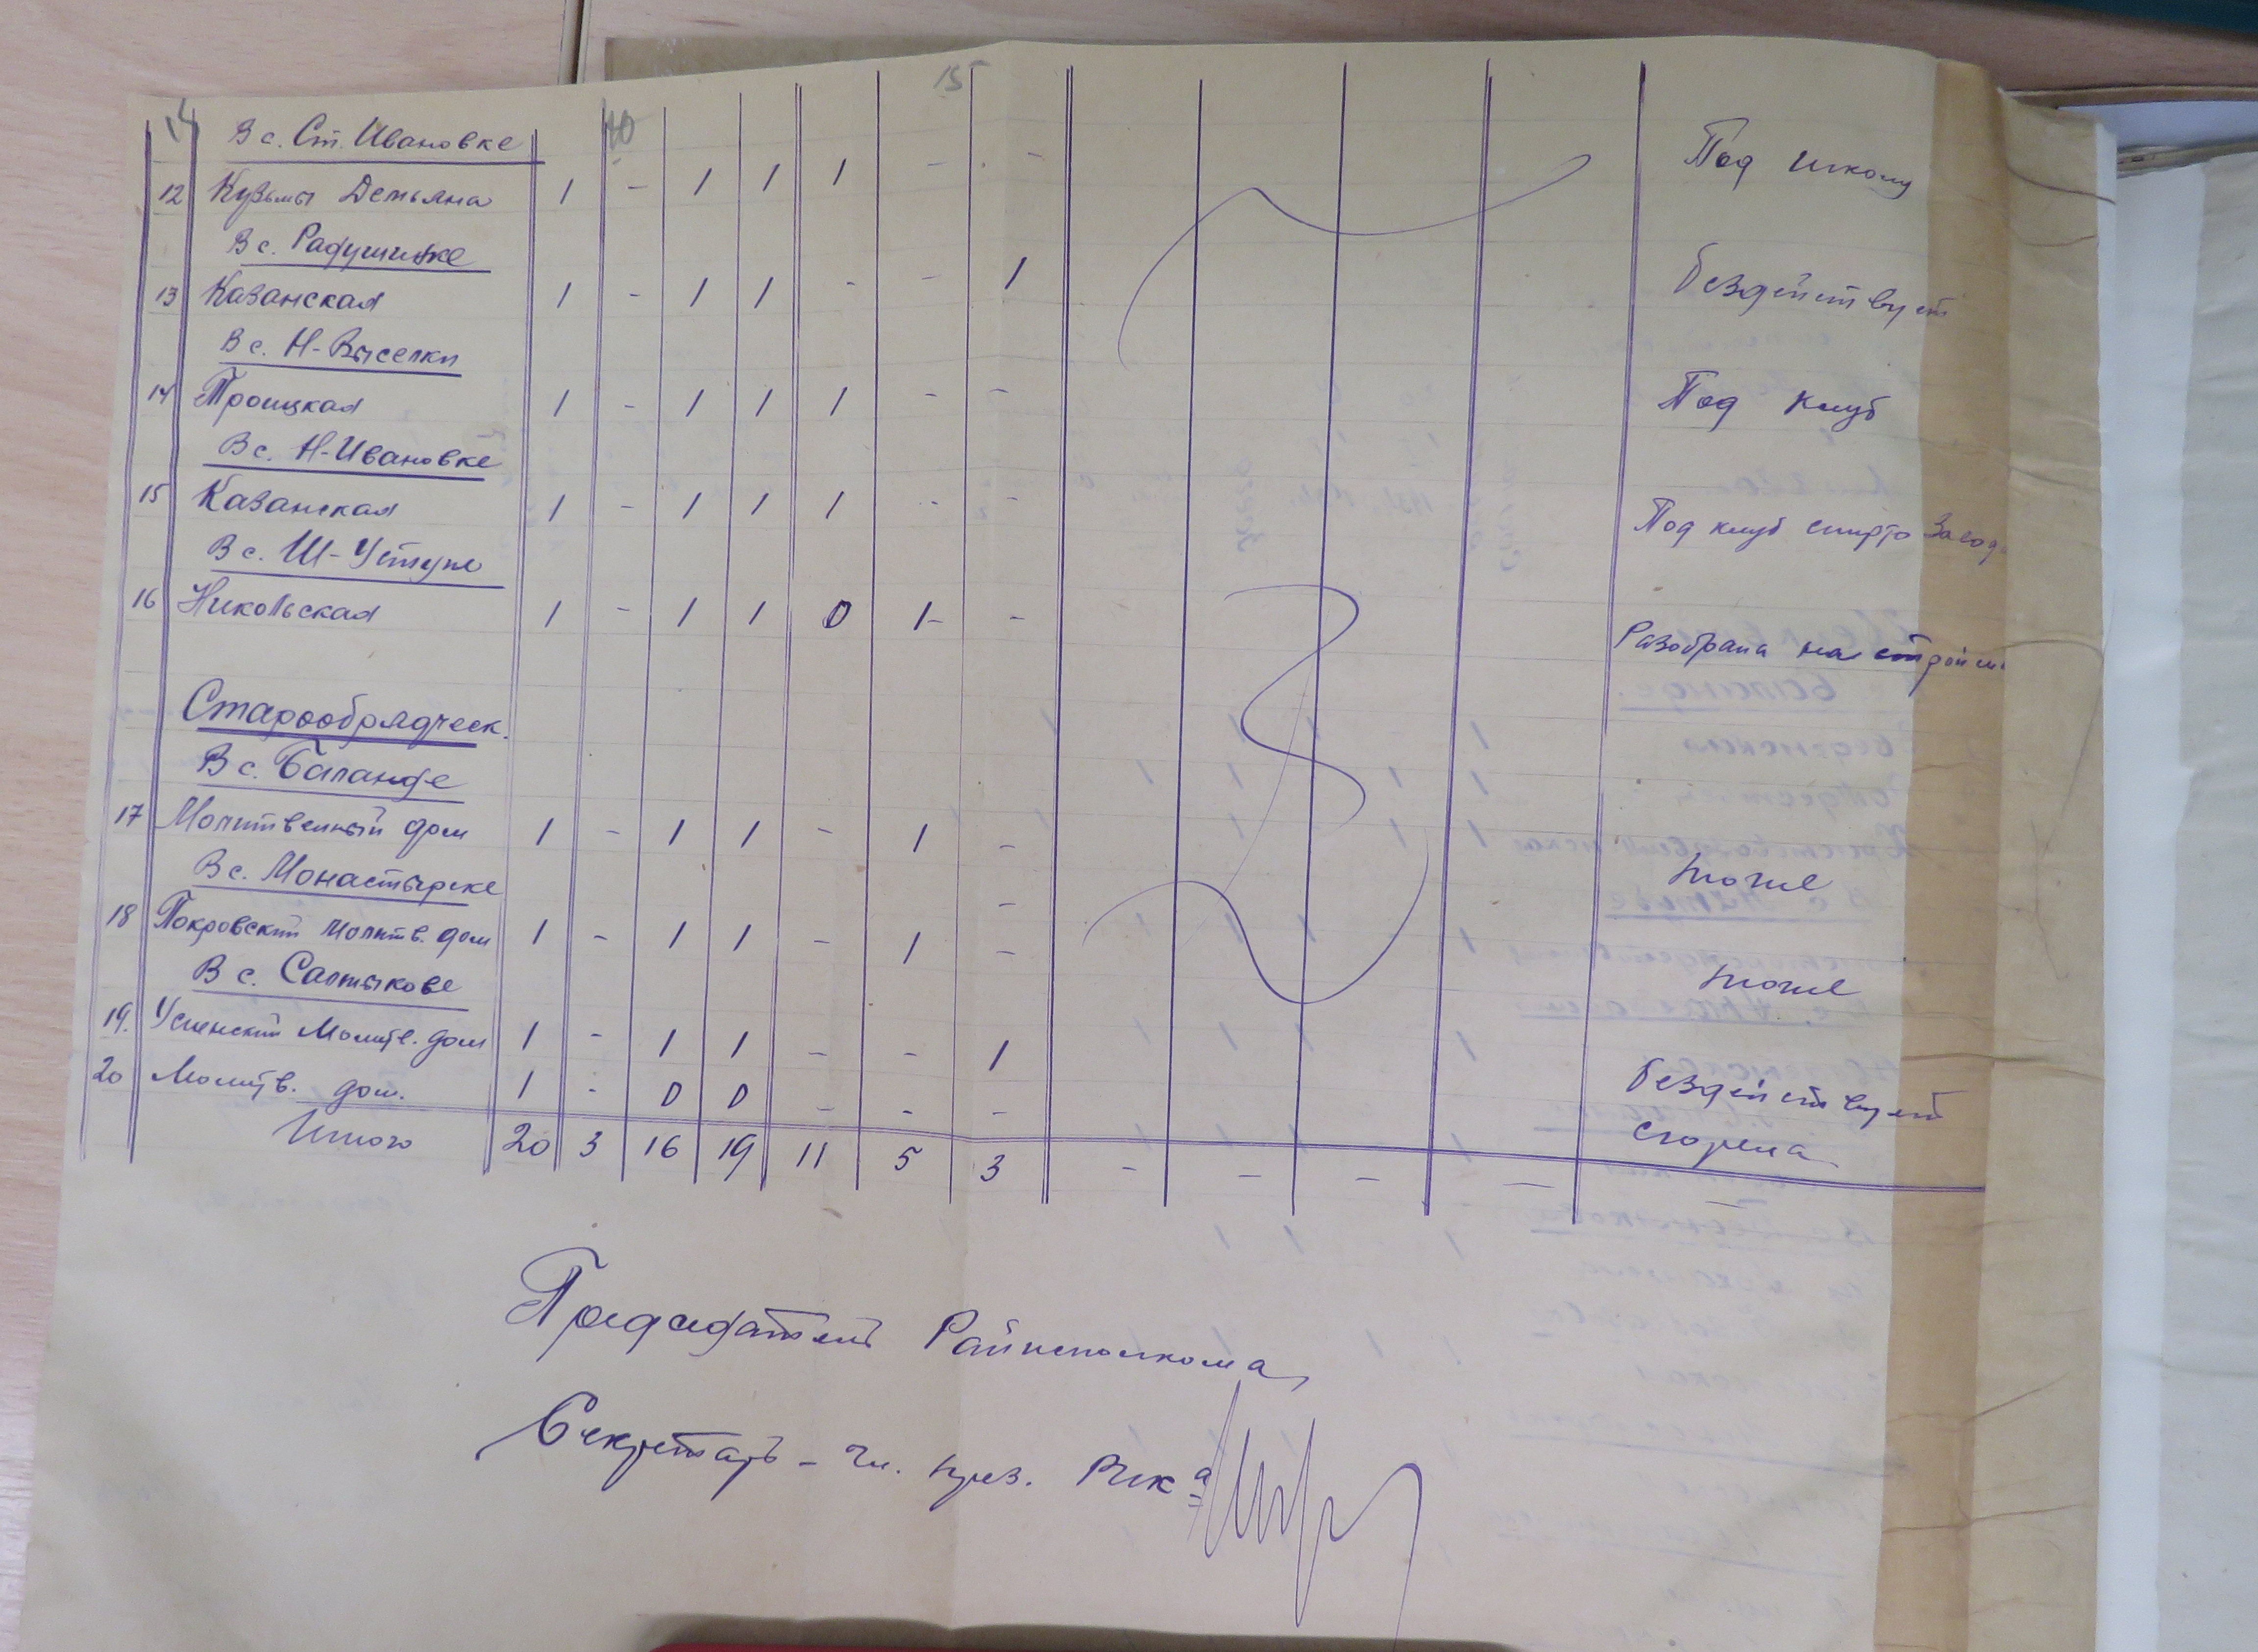 14 40 15
В с. Ст. Ивановке
12 Кузьмы Демьяна 1 - 1 1 1 - - Под школу
В с. Радушинке
13 Казанская 1 - 1 1 - - 1 бездействует
В с. Н-Выселки
14 Троицкая 1 - 1 1 1 - - Под клуб
В с. Н-Ивановке
15 Казанская 1 - 1 1 1 - - Под клуб спирто завода
В с. Ш-Уступе
16 Никольская 1 - 1 1 0 1- - Разобрана на
Старообрядческ.
В с. Баланде
17 Молитвенный дом 1 - 1 1 - 1 -
В с. Монастырске
18 Покровский молитв. дом 1 - 1 1 - 1 -
В с. Салтыкове
19. Успенский Молитв. дом 1 - 1 1 - - 1 бездействует
20 Молитв. дом. 1 - 0 0 - - - сгорела
Итого 20 3 16 19 11 5 3 - - - - -
Председатель Райисполкома
Секретарь - чл. през. РИКа